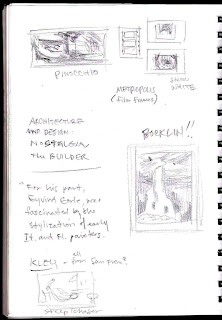 PINOCCHIO
SNOW
WHITE
METROPOLIS
(film frames)
ARCHITECTURE
AND DESIGN:
NOSTALGIA
The BUILDER
BOEKLIN!!
"For his part,
Eyvind Earle, was
fascinated by the
stylization of early
It. and Fl. painters.
KLEY - all
from San Fran?